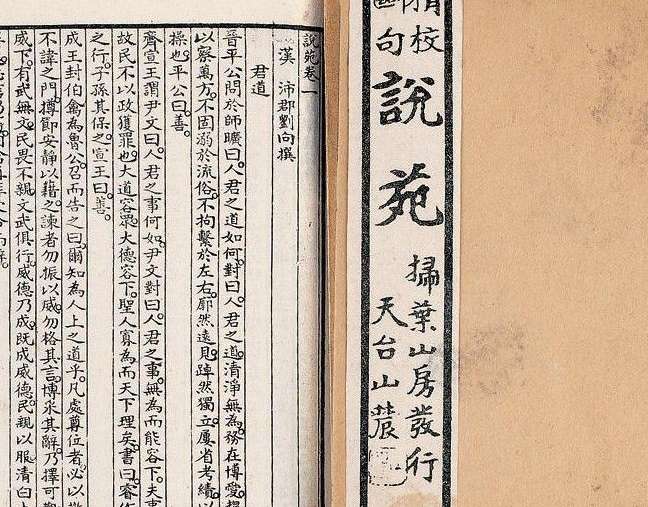 校
句
說苑
掃葉山房發行
天台山農
說苑卷一
漢 沛郡劉向撰
君道
晉平公問於師曠曰。人君之道如何。對曰。人君之道。清淨無為。務在博愛。
以察萬方。不固溺於流俗。不拘繫於左右。廓然遠見。踔然獨立。屢省考績。以
操也。平公曰。善。
齊宣王謂尹文曰。人君之事何如。尹文對曰。人君之事。無為而能容下。夫事
故民不以政獲罪也。大道容眾。大德容下。聖人寡為而天下理矣。書曰。睿作
之行。子孫其保之。宣王曰。善。
成王封伯禽為魯公。召而告之曰。爾知為人上之道乎。凡處尊位者。必以
不諱之門。撙節安靜以藉之。諫者勿振以威。勿格其言。博采其辭。乃擇可
威下。有武無文。民畏不親。文武俱行。威德乃成。既成威德。民親以服。清白